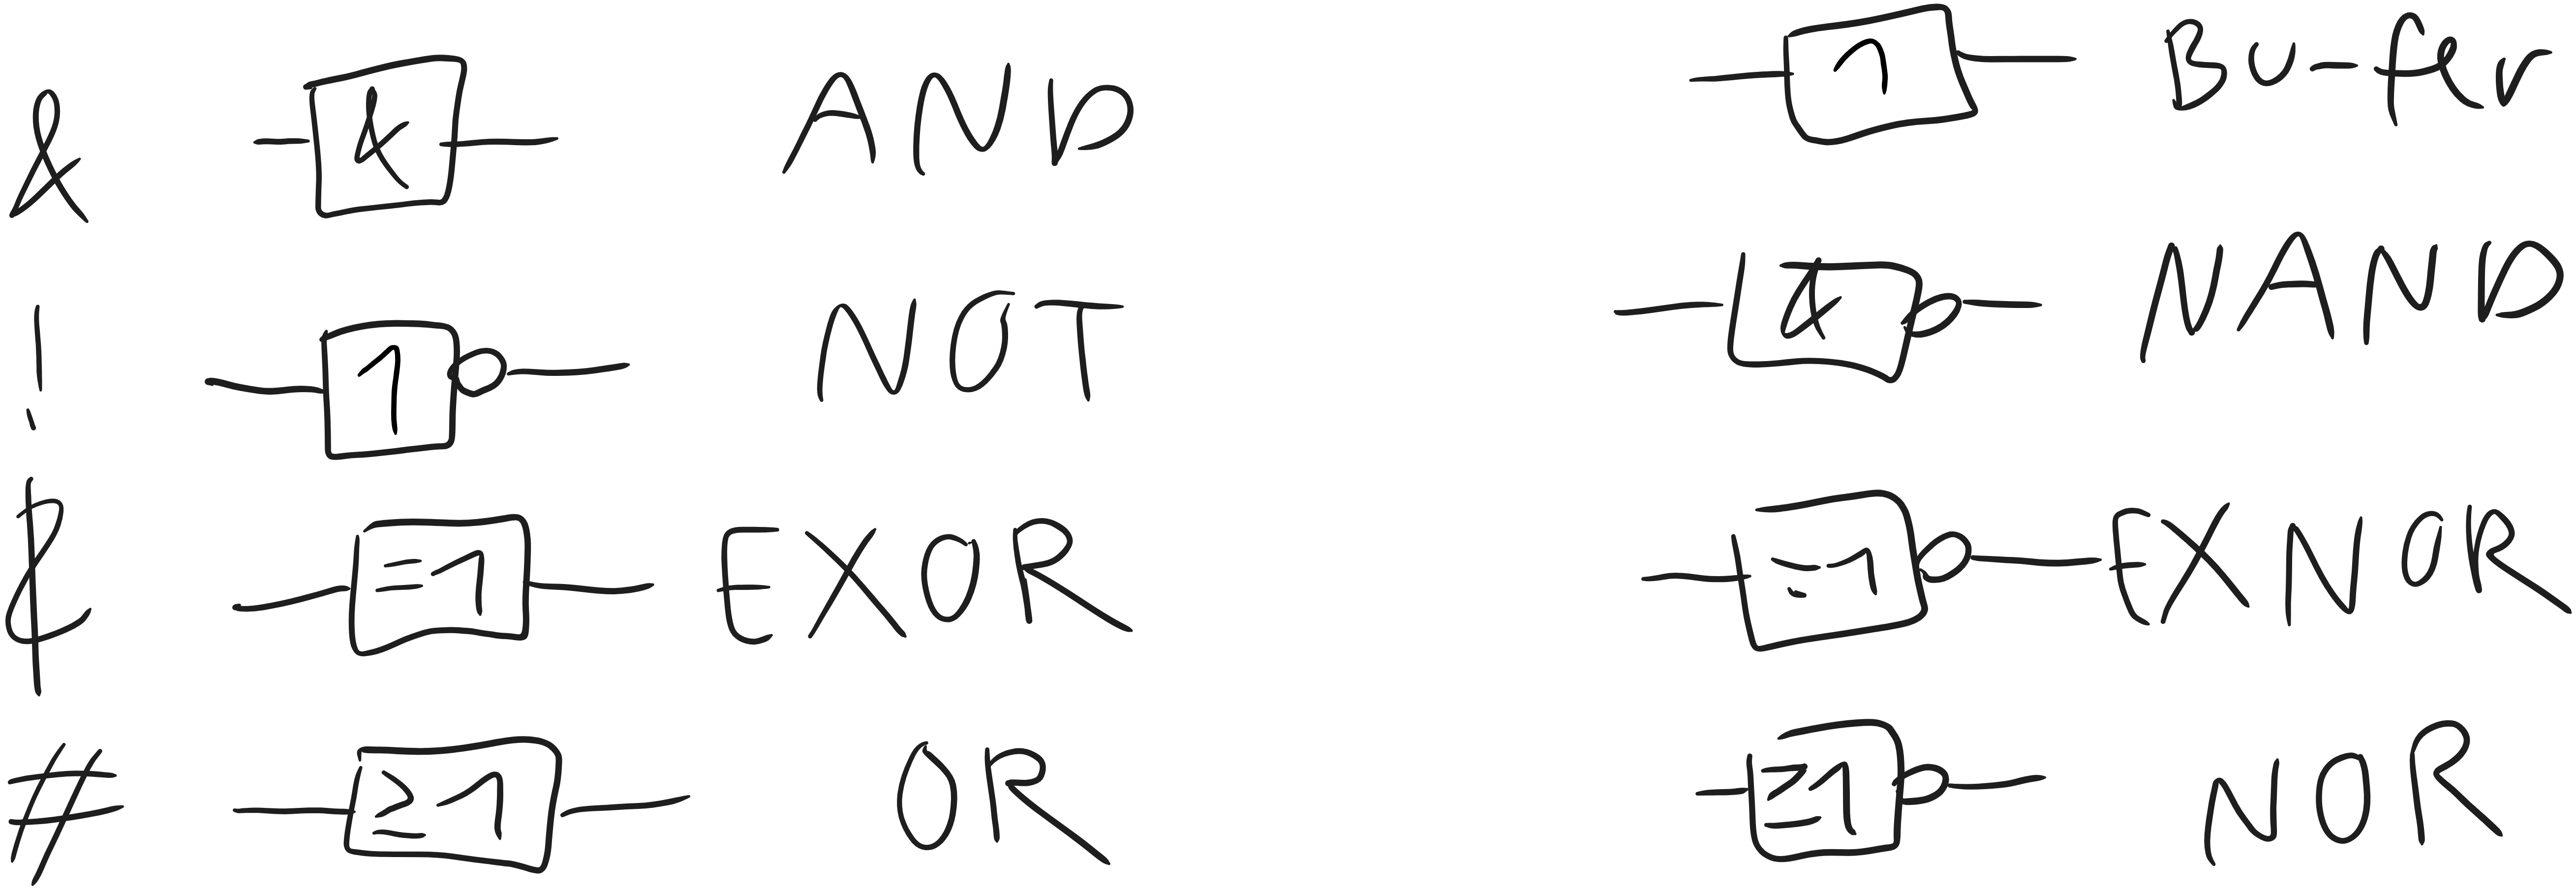 & & AND
! 1 NOT
$ =1 EXOR
# ≥1 OR
1 Bu-fer
& NAND
=1 EXNOR
≥1 NOR